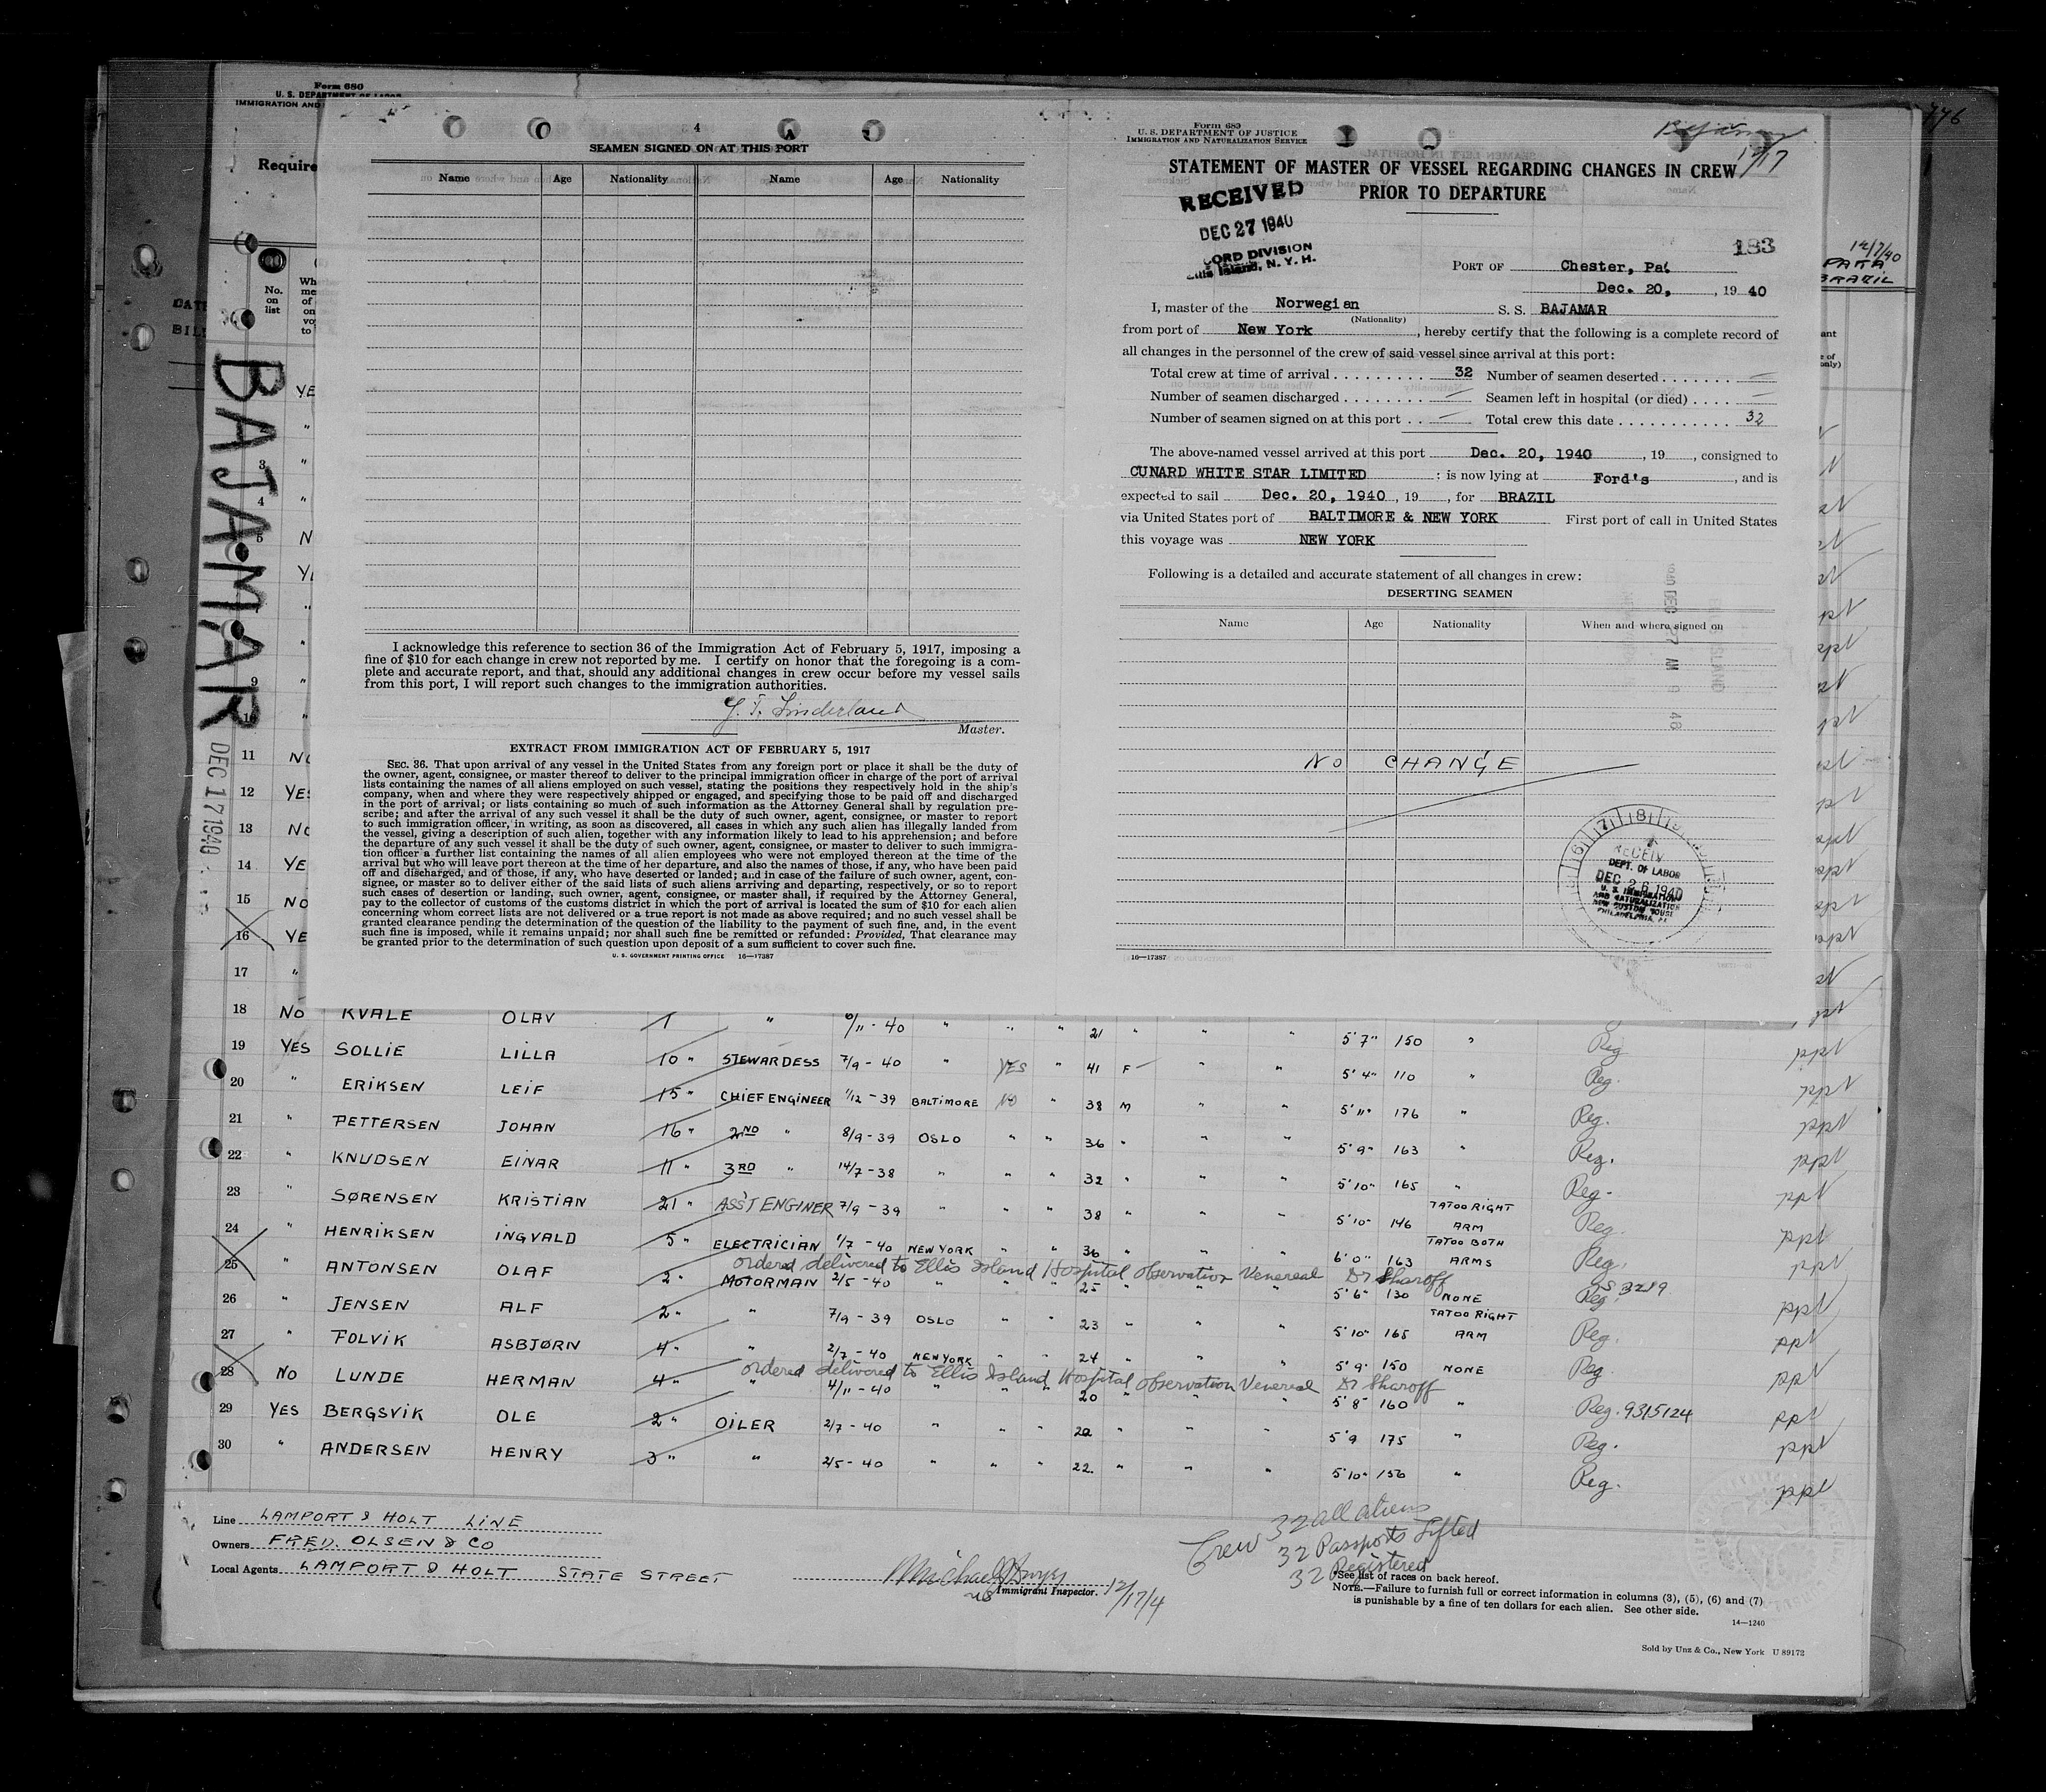 Form 680
U. S. DEPARTMENT OF LABOR
IMMIGRATION AND
Require
No. on list
BAJAMAR
DEC 17 1940
4
SEAMEN SIGNED ON AT THIS PORT
Name Age Nationality Name Age Nationality
I acknowledge this reference to section 36 of the Immigration Act of February 5, 1917, imposing a
fine of $10 for each change in crew not reported by me. I certify on honor that the foregoing is a com-
plete and accurate report, and that, should any additional changes in crew occur before my vessel sails
from this port, I will report such changes to the immigration authorities.
Master.
EXTRACT FROM IMMIGRATION ACT OF FEBRUARY 5, 1917
SEC. 36. That upon arrival of any vessel in the United States from any foreign port or place it shall be the duty of
the owner, agent, consignee, or master thereof to deliver to the principal immigration officer in charge of the port of arrival
lists containing the names of all aliens employed on such vessel, stating the positions they respectively hold in the ship's
company, when and where they were respectively shipped or engaged, and specifying those to be paid off and discharged
in the port of arrival; or lists containing so much of such information as the Attorney General shall by regulation pre-
scribe; and after the arrival of any such vessel it shall be the duty of such owner, agent, consignee, or master to report
to such immigration officer, in writing, as soon as discovered, all cases in which any such alien has illegally landed from
the vessel, giving a description of such alien, together with any information likely to lead to his apprehension; and before
the departure of any such vessel it shall be the duty of such owner, agent, consignee, or master to deliver to such immigra-
tion officer a further list containing the names of all alien employees who were not employed thereon at the time of the
arrival but who will leave port thereon at the time of her departure, and also the names of those, if any, who have been paid
off and discharged, and of those, if any, who have deserted or landed; and in case of the failure of such owner, agent, con-
signee, or master so to deliver either of the said lists of such aliens arriving and departing, respectively, or so to report
such cases of desertion or landing, such owner, agent, consignee, or master shall, if required by the Attorney General,
pay to the collector of customs of the customs district in which the port of arrival is located the sum of $10 for each alien
concerning whom correct lists are not delivered or a true report is not made as above required; and no such vessel shall be
granted clearance pending the determination of the question of the liability to the payment of such fine, and, in the event
such fine is imposed, while it remains unpaid; nor shall such fine be remitted or refunded: Provided, That clearance may
be granted prior to the determination of such question upon deposit of a sum sufficient to cover such fine.
U. S. GOVERNMENT PRINTING OFFICE 16—17387
Form 689
U. S. DEPARTMENT OF JUSTICE
IMMIGRATION AND NATURALIZATION SERVICE
Bajamar
12/17
STATEMENT OF MASTER OF VESSEL REGARDING CHANGES IN CREW
PRIOR TO DEPARTURE
RECEIVED
DEC 27 1940
CORD DIVISION
Ellis Island, N. Y. H.
183
PORT OF Chester, Pa.
Dec. 20, , 19 40
I, master of the Norwegian S. S. BAJAMAR
(Nationality)
from port of New York , hereby certify that the following is a complete record of
all changes in the personnel of the crew of said vessel since arrival at this port:
Total crew at time of arrival 32 Number of seamen deserted —
Number of seamen discharged — Seamen left in hospital (or died) —
Number of seamen signed on at this port — Total crew this date 32
The above-named vessel arrived at this port Dec. 20, 1940 , 19 , consigned to
CUNARD WHITE STAR LIMITED : is now lying at Ford's , and is
expected to sail Dec. 20, 1940 , 19 , for BRAZIL
via United States port of BALTIMORE & NEW YORK First port of call in United States
this voyage was NEW YORK
Following is a detailed and accurate statement of all changes in crew:
DESERTING SEAMEN
Name Age Nationality When and where signed on
NO CHANGE
DEPT. OF LABOR
DEC 26 1940
U. S. IMMIGRATION
AND NATURALIZATION
NEW CUSTOM HOUSE
PHILADELPHIA, PA.
16—17387
12/7/40
PARA
BRAZIL
11 NO
12 YES
13 NO
14 YE
15 NO
16 YE
17 "
18 NO KVALE OLAV 1 " 6/11-40 " " " 21 " " " 5'7" 150 " Reg ppt
19 YES SOLLIE LILLA 10 " STEWARDESS 7/9-40 " YES " 41 F " " 5'4" 110 " Reg. ppt
20 " ERIKSEN LEIF 15 " CHIEF ENGINEER 1/12-39 BALTIMORE NO " 38 M " " 5'11" 176 " Reg. ppt
21 " PETTERSEN JOHAN 16 " 2ND " 8/9-39 OSLO " " 36 " " " 5'9" 163 " Reg. ppt
22 " KNUDSEN EINAR 11 " 3RD " 14/7-38 " " " 32 " " " 5'10" 165 " Reg. ppt
23 " SØRENSEN KRISTIAN 21 " ASS'T ENGINER 7/9-39 " " " 38 " " " 5'10" 146 TATOO RIGHT ARM Reg. ppt
24 " HENRIKSEN INGVALD 5 " ELECTRICIAN 1/7-40 NEW YORK " " 36 " " " 6'0" 163 TATOO BOTH ARMS Reg. ppt
ordered delivered to Ellis Island Hospital observation Venereal Dr Sharoff
25 " ANTONSEN OLAF 2 " MOTORMAN 2/5-40 " " " 25 " " " 5'6" 130 NONE Reg. ppt
26 " JENSEN ALF 2 " " 7/9-39 OSLO " " 23 " " " 5'10" 165 TATOO RIGHT ARM Reg. ppt
27 " FOLVIK ASBJØRN 4 " " 2/7-40 NEW YORK " " 24 " " " 5'9" 150 NONE Reg. ppt
ordered delivered to Ellis Island Hospital observation Venereal Dr Sharoff
28 NO LUNDE HERMAN 4 " " 4/11-40 " " " 20 " " " 5'8" 160 " Reg. 9315124 ppt
29 YES BERGSVIK OLE 2 " OILER 2/7-40 " " " 22 " " " 5'9 175 " Reg. ppt
30 " ANDERSEN HENRY 3 " " 2/5-40 " " " 22 " " " 5'10" 156 " Reg. ppt
Line LAMPORT & HOLT LINE
Owners FRED. OLSEN & CO
Local Agents LAMPORT & HOLT STATE STREET
Immigrant Inspector. 12/17/4
Crew 32 all aliens
32 Passports Lifted
32 Registered
*See list of races on back hereof.
NOTE.—Failure to furnish full or correct information in columns (3), (5), (6) and (7)
is punishable by a fine of ten dollars for each alien. See other side.
14—1240
Sold by Unz & Co., New York U 89172